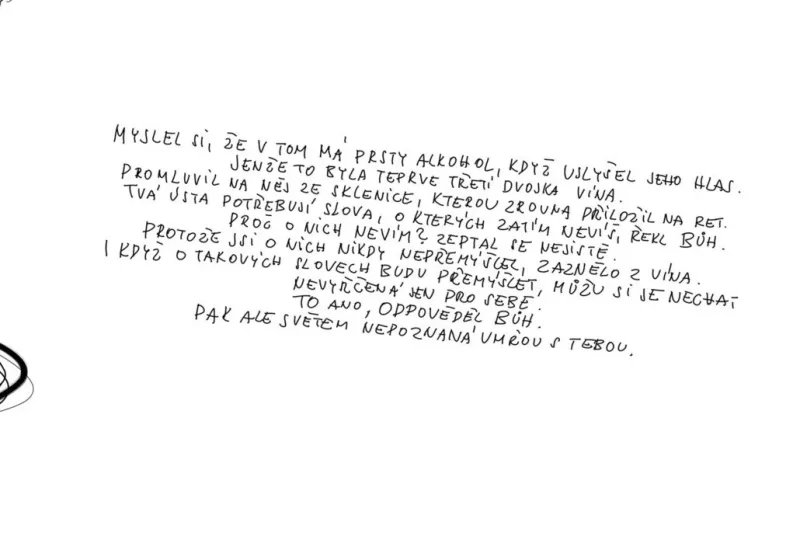 MYSLEL SI, ŽE V TOM MÁ PRSTY ALKOHOL, KDYŽ USLYŠEL JEHO HLAS.
JENŽE TO BYLA TEPRVE TŘETÍ DVOJKA VÍNA.
PROMLUVIL NA NĚJ ZE SKLENICE, KTEROU ZROVNA PŘILOŽIL NA RET.
TVÁ ÚSTA POTŘEBUJÍ SLOVA, O KTERÝCH ZATÍM NEVÍŠ, ŘEKL BŮH.
PROČ O NICH NEVÍM? ZEPTAL SE NEJISTĚ.
PROTOŽE JSI O NICH NIKDY NEPŘEMÝŠLEL, ZAZNĚLO Z VÍNA.
I KDYŽ O TAKOVÝCH SLOVECH BUDU PŘEMÝŠLET, MŮŽU SI JE NECHAT
NEVYŘČENÁ JEN PRO SEBE.
TO ANO, ODPOVĚDĚL BŮH.
PAK ALE SVĚTEM NEPOZNANÁ UMŘOU S TEBOU.